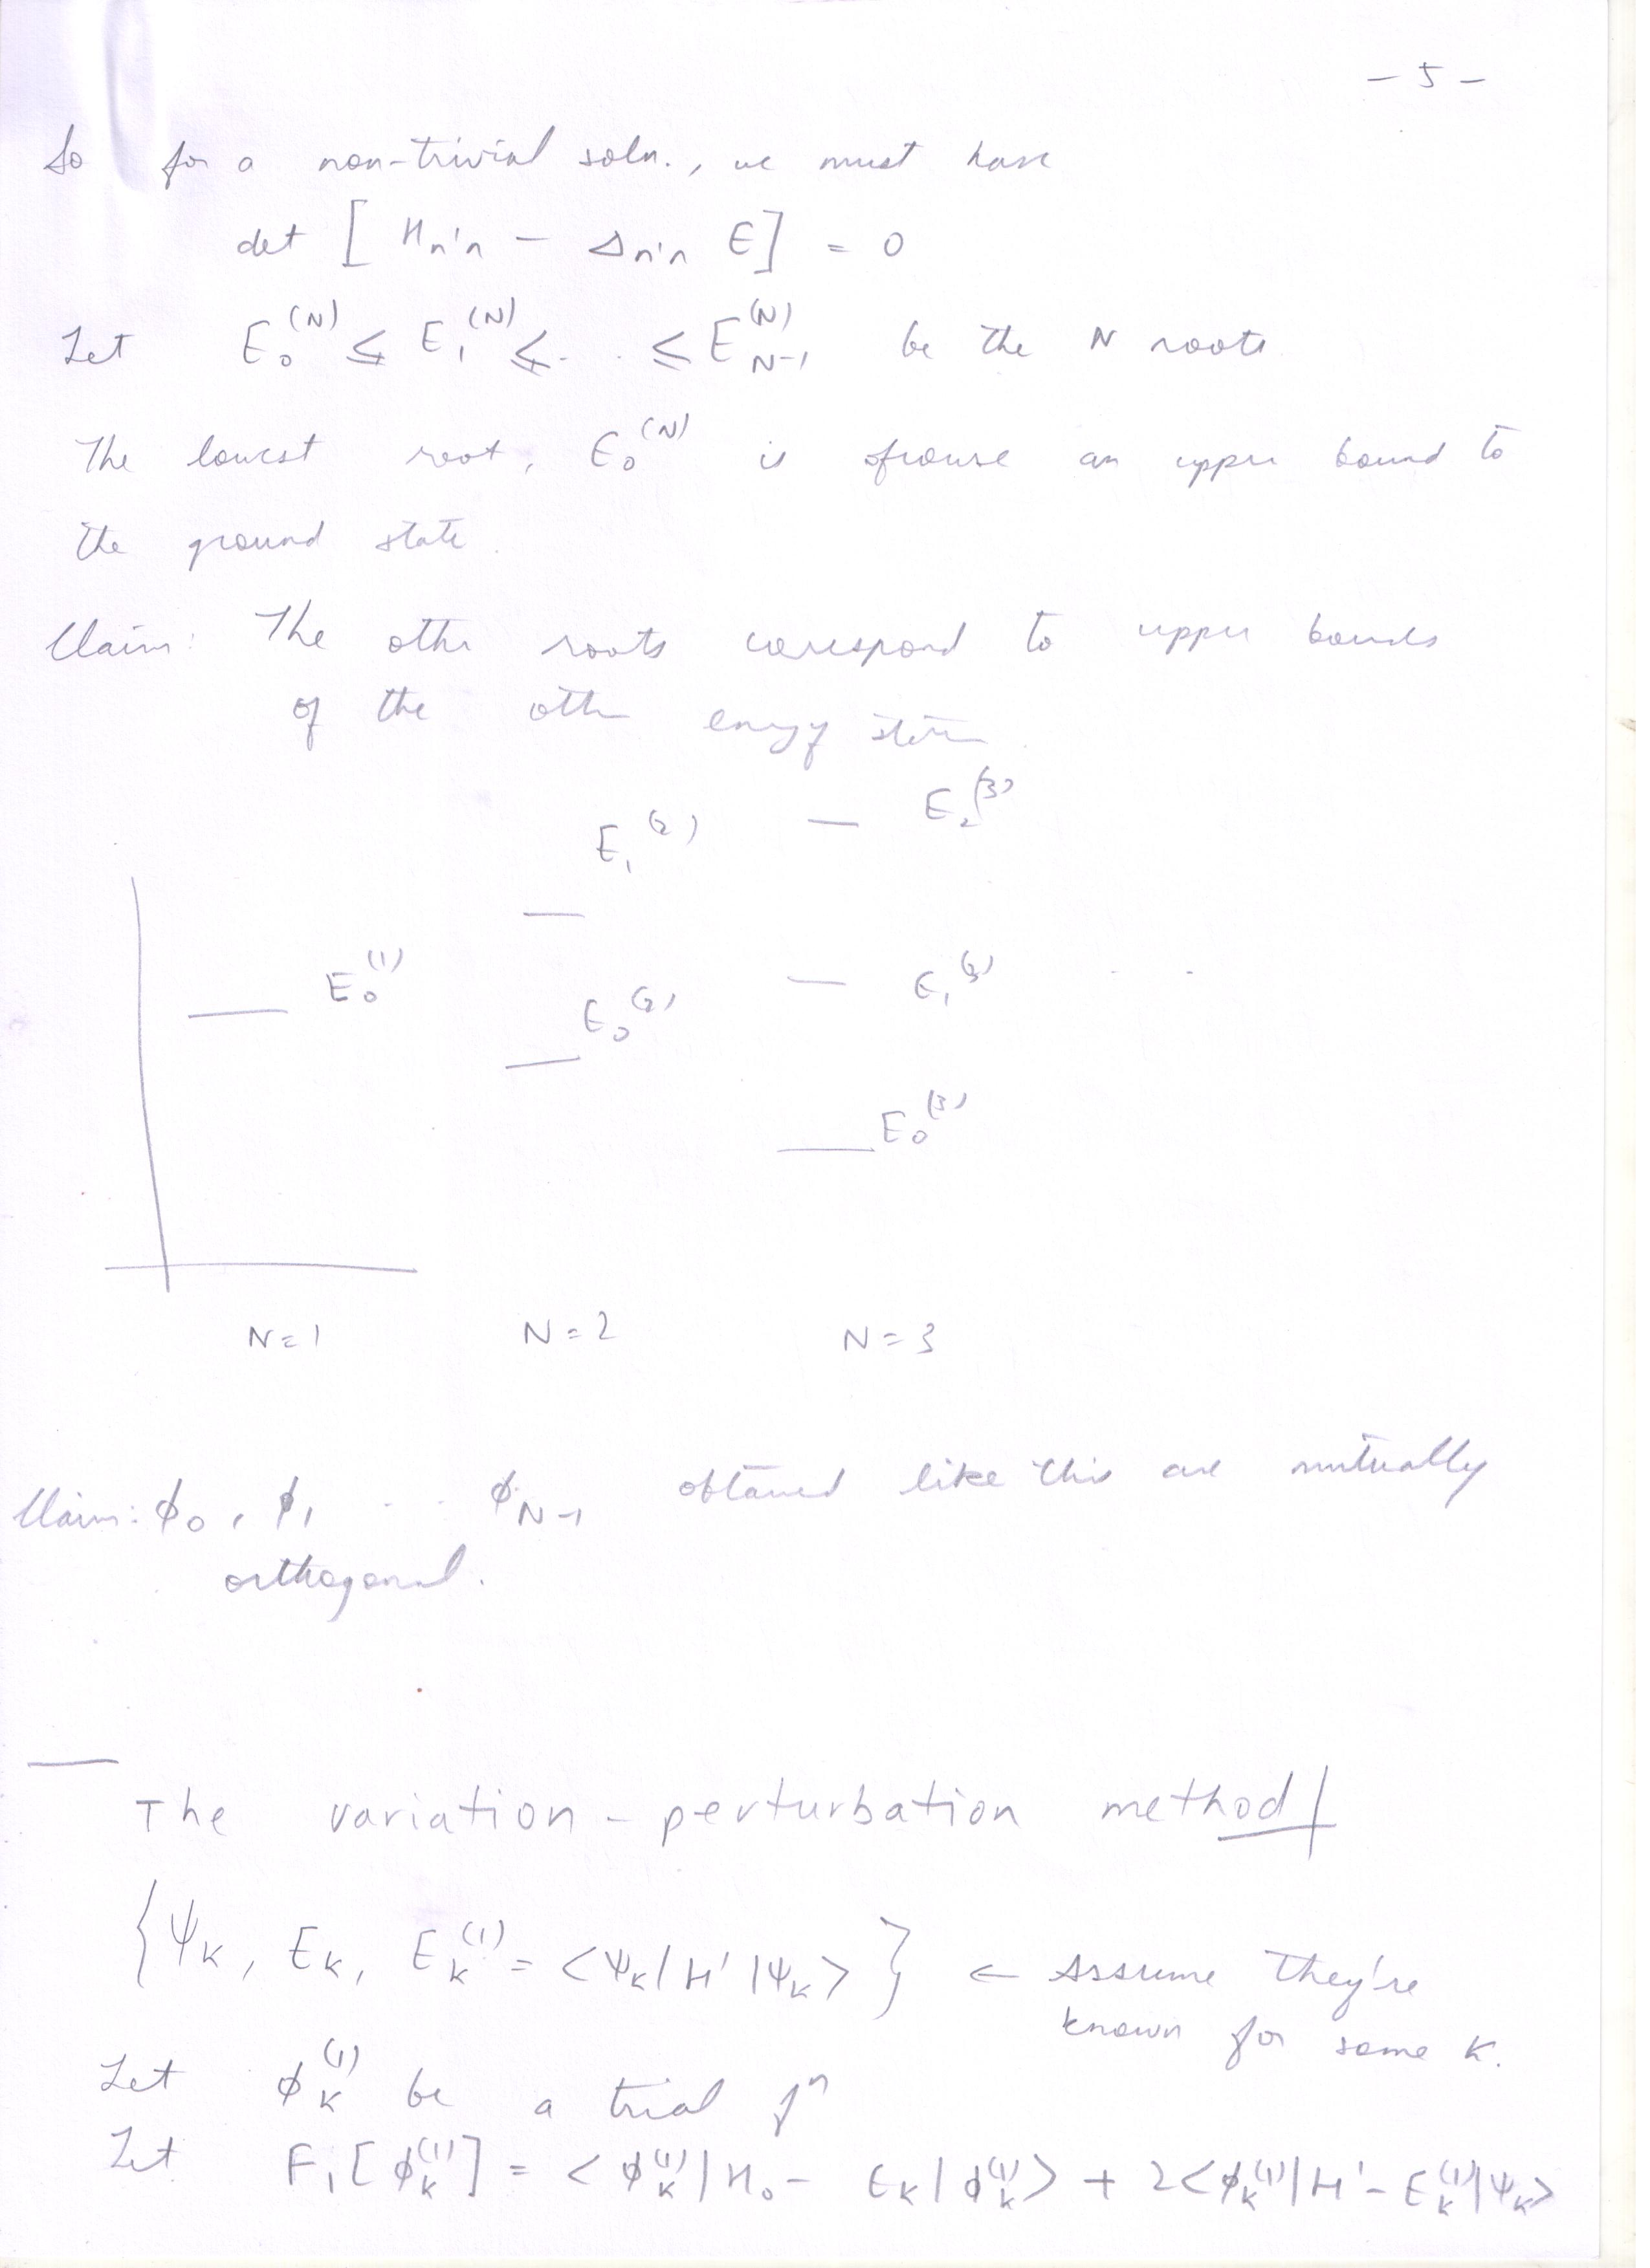 - 5 -
So for a non-trivial soln., we must have
det [ H_{n'n} - Δ_{n'n} E ] = 0
Let E_0^{(N)} ≤ E_1^{(N)} ≤ . . ≤ E_{N-1}^{(N)} be the N roots
The lowest root, E_0^{(N)} is ofcourse an upper bound to
the ground state.
Claim: The other roots correspond to upper bounds
of the other energy states.
E_1^{(2)} — E_2^{(3)}
E_0^{(1)} E_0^{(2)} — E_1^{(3)} . .
E_0^{(3)}
N=1 N=2 N=3
Claim: ϕ_0, ϕ_1 . . . ϕ_{N-1} obtained like this are mutually
orthogonal.
The variation-perturbation method
{ Ψ_K, E_K, E_K^{(1)} = <Ψ_K|H'|Ψ_K> } ← Assume they're
known for some K.
Let ϕ_K^{(1)} be a trial fⁿ
Let F_1[ϕ_K^{(1)}] = <ϕ_K^{(1)}|H_0 - E_K|ϕ_K^{(1)}> + 2<ϕ_K^{(1)}|H' - E_K^{(1)}|Ψ_K>